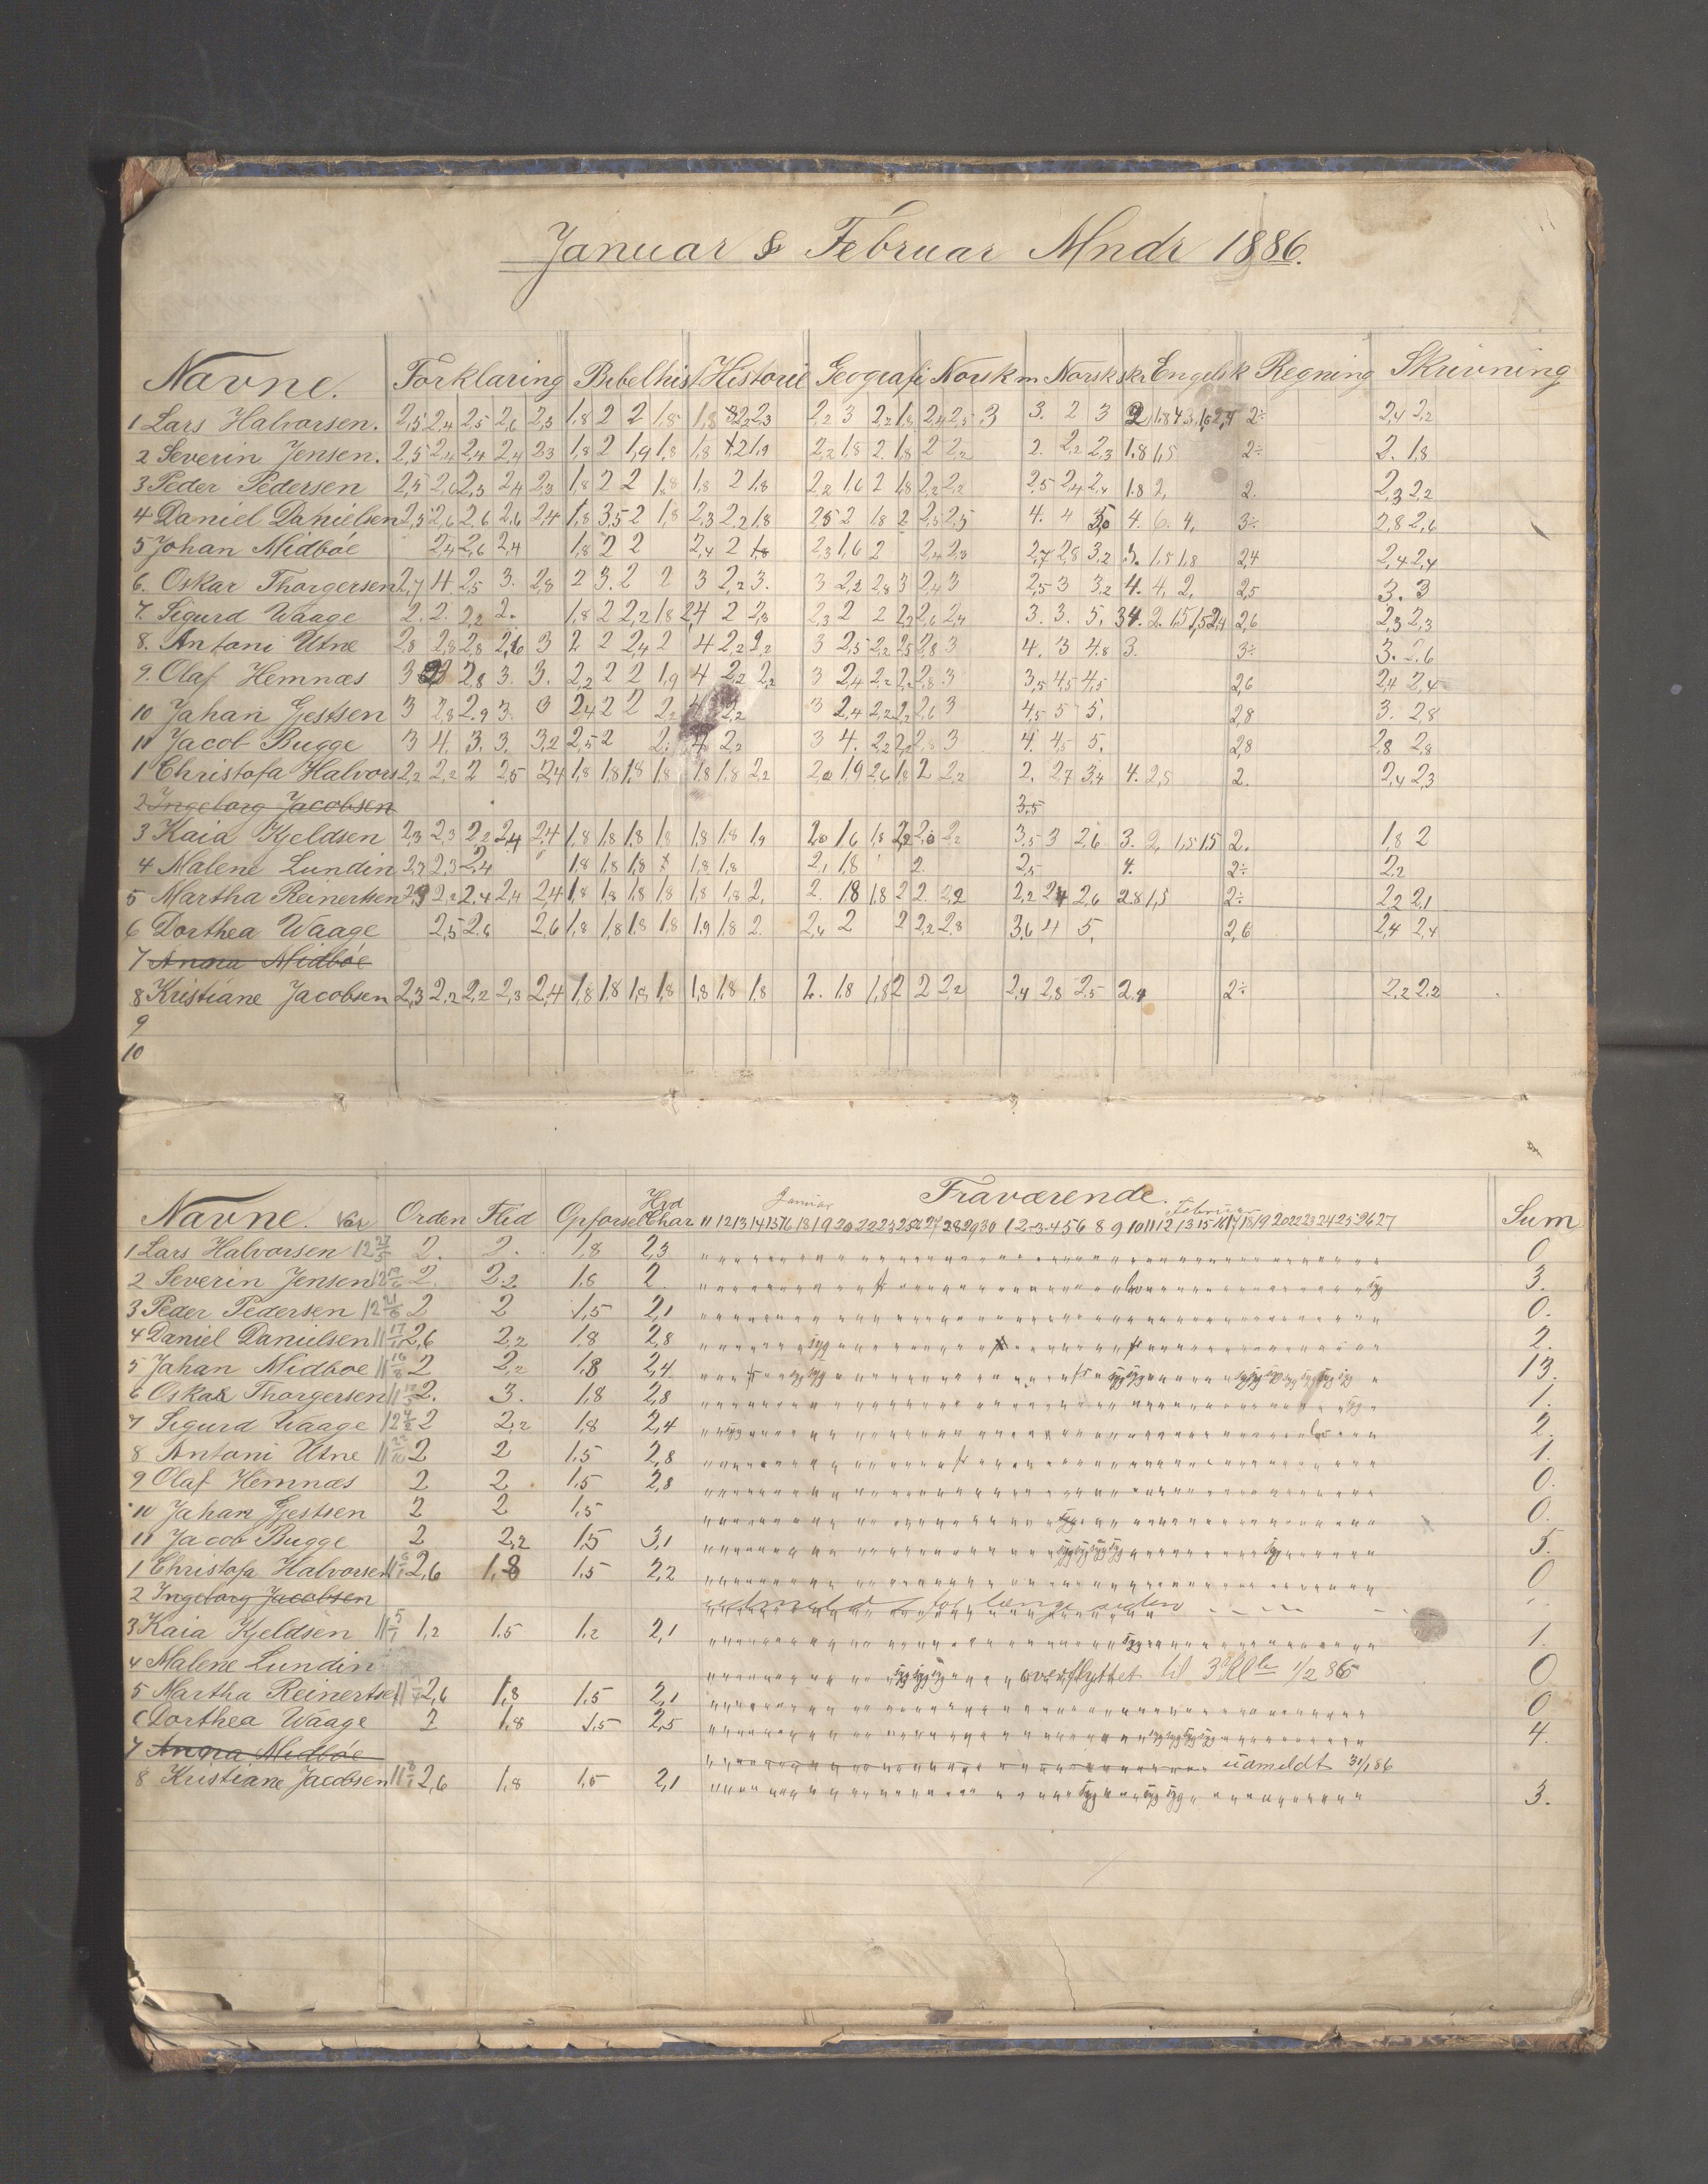 Januar & Februar Mndr 1886.
Navne. Forklaring Bibelhist. Historie Geografi Norsk m Norsk skr Engelsk Regning Skrivning
1 Lars Halvorsen. 2,5 2,4 2,5 2,6 2,3 1,8 2 2 1,8 2,2 3 2,2 1,8 2,4 2,5 3 3. 2 3 2÷ 2,4 2,2
2 Severin Jensen. 2,5 2,4 2,4 2,4 2,3 1,8 2 1,9 1,8 1,8 2,2 1,8 2. 1,8 2 2,2 2. 2,2 2,3 1.8 1,5 2÷ 2. 1,8
3 Peder Pedersen 2,5 2,6 2,3 2,4 2,3 1,8 2 2 1,8 1,8 2 1,8 2,2 1,6 2 1,8 2,2 2,2 2,5 2,4 2,4 1.8 2, 2. 2,3 2,2
4 Daniel Danielsen 2,5 2,6 2,6 2,6 2,4 1,8 3,5 2 1,8 2,3 2,2 1,8 2,5 2 1,8 2 2,5 2,5 4. 4 4. 6. 4, 3÷ 2,8 2,6
5 Johan Midbóe 2,4 2,6 2,4 1,8 2 2 2,4 2 1,8 2,3 1,6 2 2,4 2,3 2,7 2,8 3,2 3. 1,5 1,8 2,4 2,4 2,4
6. Oskar Thorgersen 2,7 4 2,5 3. 2,8 2 3. 2 2 3 2,2 3. 3 2,2 2,8 3 2,4 3 2,5 3 3,2 4. 4, 2, 2,5 3. 3
7. Sigurd Waage 2. 2. 2,2 2. 1,8 2 2,2 1,8 2,4 2 2,3 2,3 2 2 2,2 2,6 2,4 3. 3. 5. 2,6 2,3 2,3
8. Antoni Utne 2,8 2,8 2,8 2,6 3 2 2 2,4 2 4 2,2 2,2 3 2,5 2,2 2,5 2,8 3 4. 3 4.8 3. 3÷ 3. 2,6
9. Olaf Hemnæs 3 2,8 3. 3. 2,2 2 2 1,9 4 2,2 2,2 3 2,4 2,2 2,2 2,8 3 3,5 4,5 4,5 2,6 2,4 2,4
10 Jahan Gjestsen 3 2,8 2,9 3. 3 2,4 2 2 2,2 2,2 3 2,4 2,2 2,2 2,6 3 4,5 5 5, 2,8 3. 2,8
11 Jacob Bugge 3 4. 3. 3. 3,2 2,5 2 2. 4 2,2 3 4. 2,2 2,2 2,8 3 4. 4,5 5. 2,8 2,8 2,8
1 Christofa Halvors 2,2 2,2 2 2,5 2,4 1,8 1,8 1,8 1,8 1,8 1,8 2,2 2,0 1,9 2,6 1,8 2 2,2 2. 2,7 3,4 4. 2,5 2. 2,4 2,3
2 Ingeborg Jacobsen 3,5
3 Kaia Kjeldsen 2,3 2,3 2,2 2,4 2,4 1,8 1,8 1,8 1,8 1,8 1,8 1,9 2,0 1,6 1,8 2,2 2,0 2,2 3,5 3 2,6 3. 2, 1,5 1,5 2. 1,8 2
4 Malene Lundin 2,3 2,3 2,4 1,8 1,8 1,8 1,8 1,8 2,1 1,8 2. 2,5 4. 2÷ 2,2
5 Martha Reinertsen 2,3 2,2 2,4 2,4 2,4 1,8 1,8 1,8 1,8 1,8 1,8 2, 2. 1,8 1,8 2 2. 2,2 2,2 2,4 2,6 2,8 1,5 2÷ 2,2 2,1
6 Dorthea Waage 2,5 2,6 2,6 1,8 1,8 1,8 1,8 1,9 1,8 2. 2,4 2 2 2,2 2,8 3,6 4 5, 2,6 2,4 2,4
7 Anna Midbóe
8 Kristiane Jacobsen 2,3 2,2 2,2 2,3 2,4 1,8 1,8 1,8 1,8 1,8 1,8 1,8 2. 1,8 1,8 2 2 2,2 2,4 2,8 2,5 2,4 2÷ 2,2 2,2
9
10
Januar Fraværende. Februar
Navne. Orden Flid Opførsel Hvd Char 11 12 13 14 15 16 18 19 20 21 22 23 25 26 27 28 29 30 1 2 3 4 5 6 8 9 10 11 12 13 15 16 17 18 19 20 22 23 24 25 26 27 Sum
1 Lars Halvorsen 2. 2. 1,8 2,3 0
2 Severin Jensen 2. 2,2 1,8 2 syg 3.
3 Peder Pedersen 2 2 1,5 2,1 0.
4 Daniel Danielsen 2,6 2,2 1,8 2,8 syg 2.
5 Jahan Midboe 2 2,2 1,8 2,4 syg syg syg syg syg syg syg syg syg syg 13.
6 Oskar Thorgersen 2. 3. 1,8 2,8 syg 1.
7 Sigurd Waage 2 2,2 1,8 2,4 syg 2.
8 Antoni Utne 2 2 1,5 2,8 1.
9 Olaf Hemnæs 2 2 1,5 2,8 0.
10 Jahan Gjestsen 2 2 1,5 0.
11 Jacob Bugge 2 2,2 1,5 3,1 syg syg syg syg syg 5.
1 Christofa Halvorsen 2,6 1,8 1,5 2,2 0
2 Ingeborg Jacobsen udmeldt for længe siden
3 Kaia Kjeldsen 1,2 1.5 1,2 2,1 syg 1.
4 Malene Lundin syg syg syg overflyttet til 3die Kl 1/2 86 0
5 Martha Reinertsen 2,6 1,8 1,5 2,1 0
6 Dorthea Waage 2 1,8 1,5 2,5 syg syg syg syg 4.
7 Anna Midbóe udmeldt 31/1 86
8 Kristiane Jacobsen 2,6 1,8 1,5 2,1 syg syg syg 3.